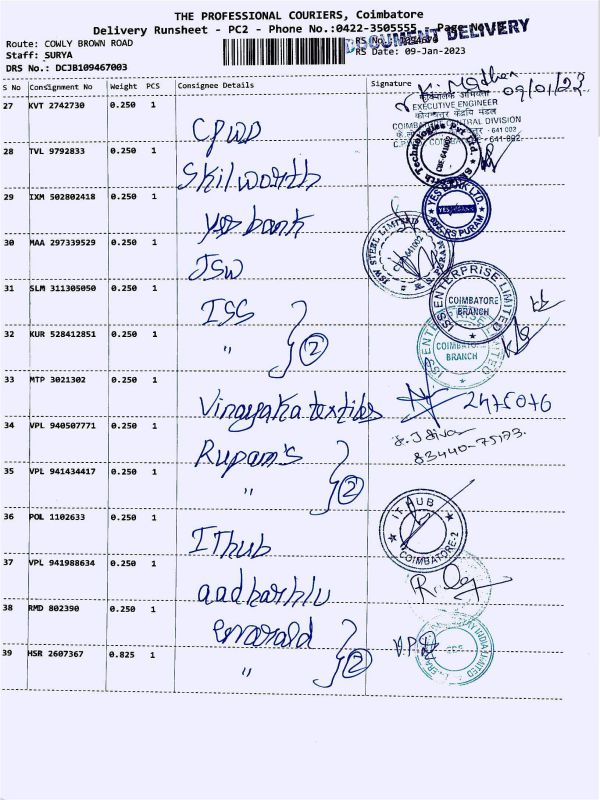 THE PROFESSIONAL COURIERS, Coimbatore
Delivery Runsheet - PC2 - Phone No.:0422-3505555 - Page No
DOCUMENT DELIVERY
Route: COWLY BROWN ROAD
Staff: SURYA RS Date: 09-Jan-2023
DRS No.: DCJB109467003
S No Consignment No Weight PCS Consignee Details Signature
27 KVT 2742730 0.250 1 CPWD
09/01/23
EXECUTIVE ENGINEER
28 TVL 9792833 0.250 1 Skilworth
29 IXM 502802418 0.250 1 yes bank
YES BANK LTD
RS PURAM
30 MAA 297339529 0.250 1 JSW
JSW STEEL LIMITED
31 SLM 311305050 0.250 1 ISS
ISS ENTERPRISE LIMITED
COIMBATORE
BRANCH
32 KUR 528412851 0.250 1 " 2
BRANCH
33 MTP 3021302 0.250 1 Vinayaka textiles
34 VPL 940507771 0.250 1 Rupam's
83440-75173.
35 VPL 941434417 0.250 1 " 2
36 POL 1102633 0.250 1 IThub
IT HUB
COIMBATORE-2
37 VPL 941988634 0.250 1 aadharhlu
38 RMD 802390 0.250 1 emarald
39 HSR 2607367 0.825 1 " 2